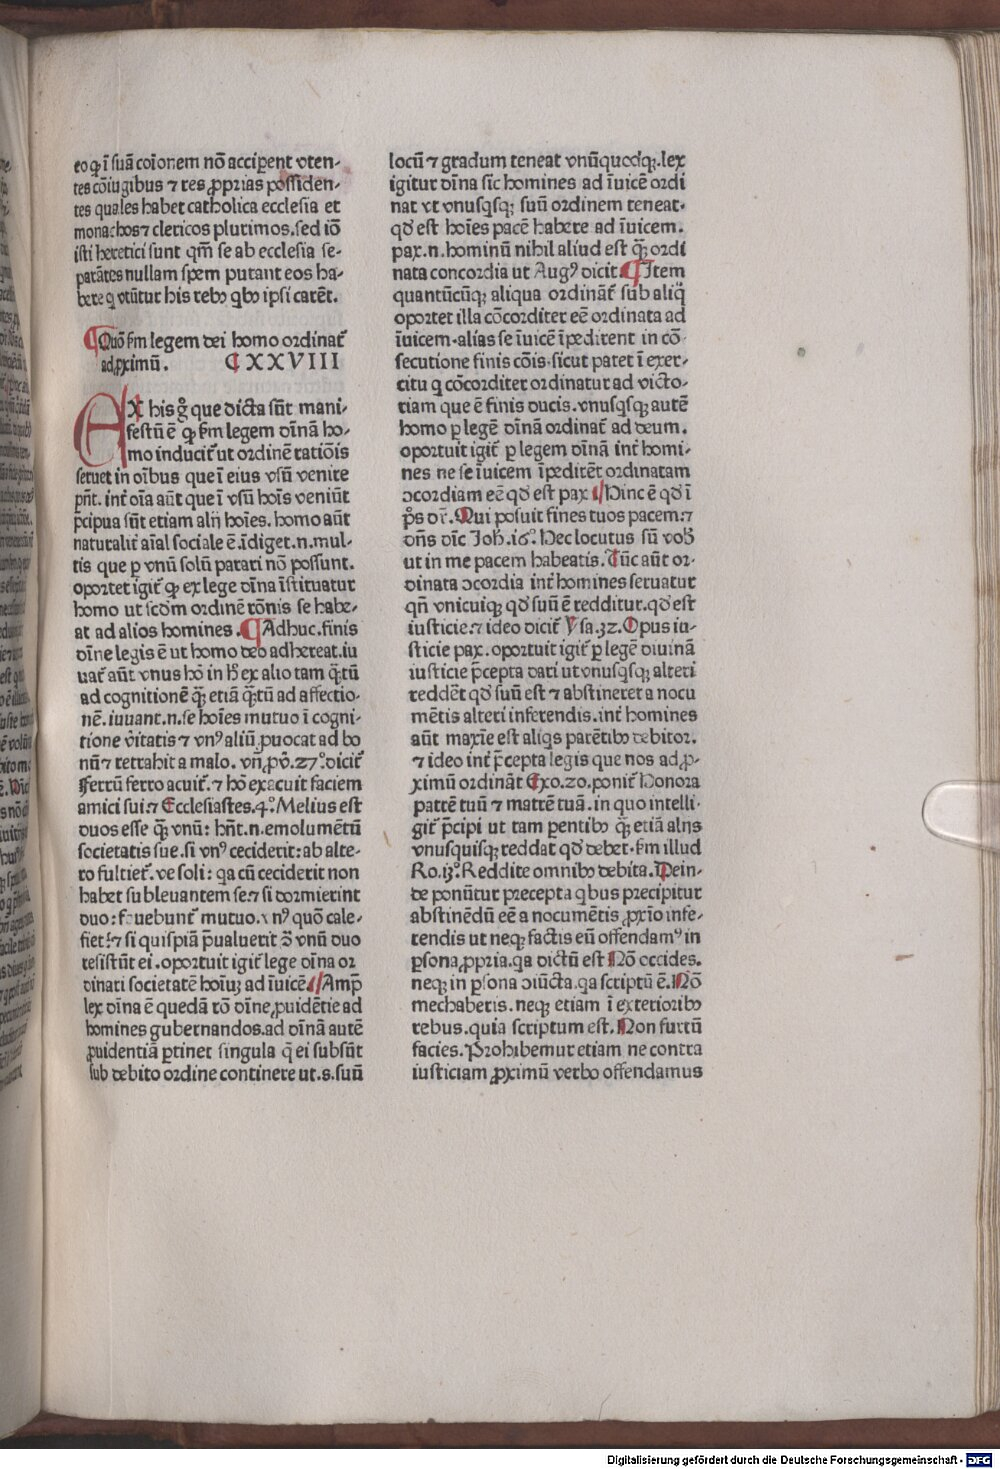 eo qꝫ ī suā coīonem nō accipent vten-
tes cōiugibus ⁊ res ꝓprias possiden-
tes quales habet catholica ecclesia et
monachos ⁊ clericos plurimos. sed iō
isti heretici sunt qm̄ se ab ecclesia se-
parātes nullam spem putant eos ha-
bere q vtūtur his rebꝰ qbꝰ ipsi carēt.
¶Quō ẜm legem dei homo ordinat᷑
ad ꝓximū. ¶ XXVIII
EX his gͦ que dicta sūt mani-
festū ē qꝫ ẜm legem dīnā ho-
mo inducit᷑ ut ordinē ratiōis
seruet in oībus que ī eius vsū venire
pn̄t. int̓ oīa aūt que ī vsū hoīs veniūt
p̄cipua sūt etiam alij hoīes. homo aūt
naturalit̓ aīal sociale ē. īdiget .n. mul-
tis que p vnū solū parari nō possunt.
oportet igit᷑ qꝫ ex lege dīna īstituatur
homo ut scdm ordinē rōnis se habe-
at ad alios homines. ¶Adhuc. finis
dīne legis ē ut homo deo adhereat. iu
uat᷑ aūt vnus hō in hꝫ ex alio tam q̄ꝫtū
ad cognitionē q̄ꝫ etiā q̄ꝫtū ad affectio-
nē. iuuant .n. se hoīes mutuo ī cogni-
tione v̓itatis ⁊ vnꝰ aliū ꝓuocat ad bo
nū ⁊ retrahit a malo. vn̄ ꝓv̓. 27ͦ. dicit᷑
Ferrū ferro acuit᷑. ⁊ hō exacuit faciem
amici sui. ⁊ Ecclesiastes .4ͦ. Melius est
duos esse q̄ꝫ vnū: hn̄t .n. emolumētū
societatis sue. si vnꝰ ceciderit: ab alte-
ro fultiet᷑. ve soli: qa cū ceciderit non
habet subleuantem se. ⁊ si dormierint
duo: fouebunt᷑ mutuo. vnꝰ quō cale-
fiet? ⁊ si quispiā p̄ualuerit ꝯ̄ vnū duo
resistūt ei. oportuit igit᷑ lege dīna or
dinari societatē hoīuꝫ ad īuicē. ¶Amp̄
lex dīna ē quedā rō dīne ꝓuidētie ad
homines gubernandos. ad dīnā autē
ꝓuidentiā ꝑtinet singula q̄ ei subsūt
sub debito ordine continere ut .s. suū
locū ⁊ gradum teneat vnūquodqꝫ. lex
igitur dīna sīc homines ad īuicē ordi
nat vt vnusqsqꝫ suū ordinem teneat.
qđ est hoīes pacē habere ad īuicem.
pax .n. hominū nihil aliud est q̄ꝫ ordi
nata concordia ut Augꝰ dicit. ¶Item
quantūcūqꝫ aliqua ordinat᷑ sub aliq̄
oportet illa cōcorditer eē ordinata ad
īuicem. alias se īuicē īpedirent in cō-
secutione finis cōis. sicut patet ī exer-
citu q cōcorditer ordinatur ad victo-
riam que ē finis ducis. vnusqsqꝫ autē
homo ꝑ legē dīnā ordinat᷑ ad deum.
oportuit igit᷑ ꝑ legem dīnā int̓ homi-
nes ne se īuicem īpedirēt ordinatam
ↄcordiam eē qđ est pax. ¶Hinc ē qđ ī
ps̄ dr̄. Qui posuit fines tuos pacem. ⁊
dn̄s dīc Joh̄. 16ͦ. Hec locutus sū vobꝫ
ut in me pacem habeatis. Tūc aūt or-
dinata ↄcordia int̓ homines seruatur
qn̄ vnicuiqꝫ qđ suū ē redditur. qđ est
iusticie. ⁊ ideo dicit᷑ Ysa. 32. Opus iu-
sticie pax. oportuit igit᷑ ꝑ legē diuinā
iusticie p̄cepta dari ut vnusqsqꝫ alteri
reddēt qđ suū est ⁊ abstineret a nocu
mētis alteri inferendis. int̓ homines
aūt maxīe est aliqs parētibꝰ debitor.
⁊ ideo int̓ p̄cepta legis que nos ad ꝓ-
ximū ordināt Exo. 20. ponit᷑ Honora
patrē tuū ⁊ matrē tuā. in quo intelli-
git᷑ p̄cipi ut tam ꝑentibꝰ q̄ꝫ etiā alijs
vnusquisqꝫ reddat qđ debet. ẜm illud
Ro. 13ͦ. Reddite omnibꝰ debita. Dein-
de ponūtur precepta qbus precipitur
abstinēdū eē a nocumētis ꝓxīo infe-
rendis ut neqꝫ factis eū offendamꝰ in
ꝑsona ꝓpria. qa dictū est Nō occides.
neqꝫ in ꝑsona ↄiūcta. qa scriptū ē. Nō
mechaberis. neqꝫ etiam ī exterioribꝰ
rebus. quia scriptum est. Non furtū
facies. Prohibemur etiam ne contra
iusticiam ꝓximū verbo offendamus
Digitalisierung gefördert durch die Deutsche Forschungsgemeinschaft - DFG